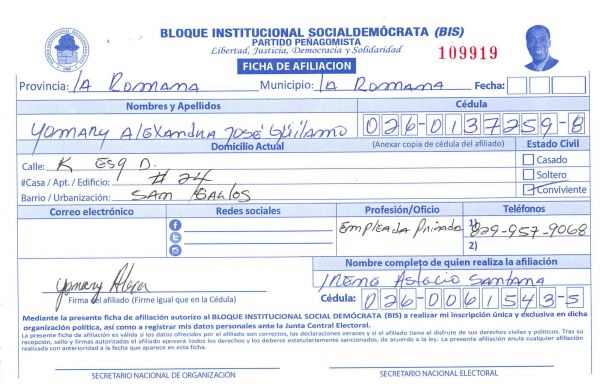 BLOQUE INSTITUCIONAL SOCIALDEMÓCRATA (BIS)
PARTIDO PEÑAGOMISTA
Libertad, Justicia, Democracia y Solidaridad
109919
FICHA DE AFILIACION
Provincia: LA ROMANA Municipio: LA ROMANA Fecha:
Nombres y Apellidos Cédula
YOMARY ALEXANDRA JOSÉ GÜILAMO 026-0137259-8
Domicilio Actual (Anexar copia de cédula del afiliado) Estado Civil
Calle: K ESQ D. Casado
#Casa / Apt. / Edificio: # 24 Soltero
Barrio / Urbanización: SAN CARLOS Conviviente
Correo electrónico Redes sociales Profesión/Oficio Teléfonos
EMPLEADA PRIVADA 1) 829-957-9068
2)
Nombre completo de quien realiza la afiliación
IRENE Astacio Santana
Firma del afiliado (Firme igual que en la Cédula) Cédula: 026-0061543-5
Mediante la presente ficha de afiliación autorizo al BLOQUE INSTITUCIONAL SOCIAL DEMÓCRATA (BIS) a realizar mi inscripción única y exclusiva en dicha
organización política, así como a registrar mis datos personales ante la Junta Central Electoral.
La presente ficha de afiliación es válida si los datos ofrecidos por el afiliado son correctos, las declaraciones veraces y si el afiliado tiene el disfrute de sus derechos civiles y políticos. Tras su
recepción, sello y firmas autorizadas el afiliado ejercerá todos los derechos y los deberes estatutariamente sancionados, de acuerdo a la ley. La presente afiliación anula cualquier afiliación
realizada con anterioridad a la fecha que aparece en esta ficha.
SECRETARIO NACIONAL DE ORGANIZACIÓN SECRETARIO NACIONAL ELECTORAL